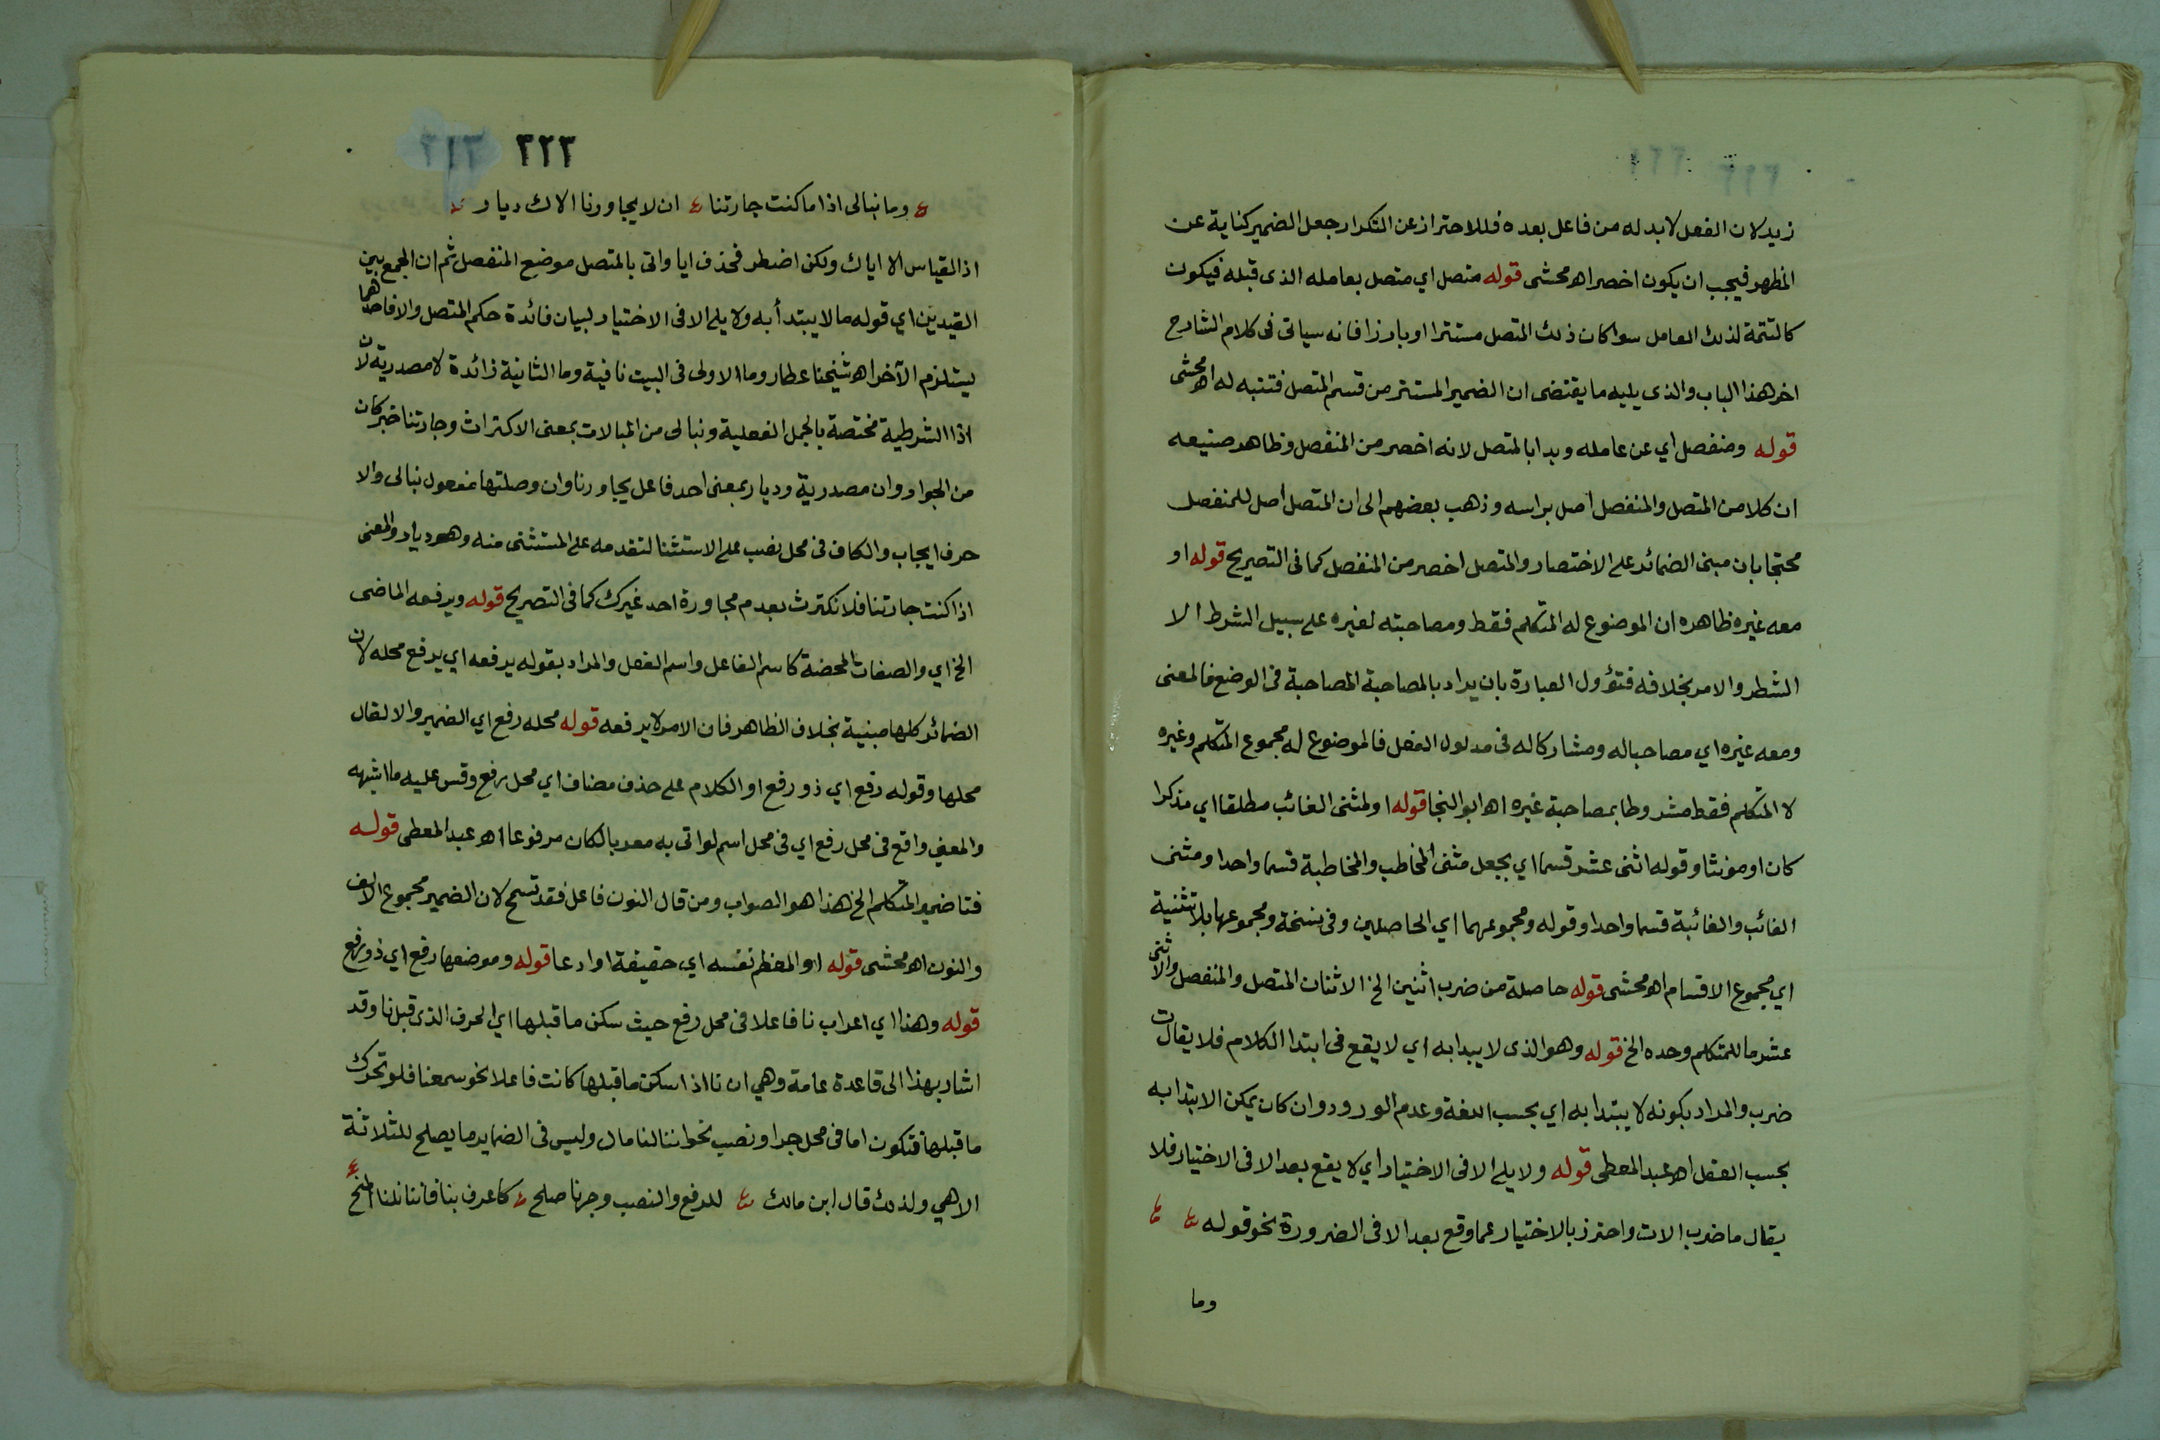 زيد لان الفعل لابد له من فاعل بعده فللاحتراز عن التكرار جعل الضمير كناية عن
المظهر فيجب ان يكون اخصر اه محشى قوله متصل اي متصل بعامله الذى قبله فيكون
كالتتمة لذلك العامل سوا كان ذلك المتصل مستترا او بارزا فانه سياتى فى كلام الشارح
اخر هذا الباب والذى يليه ما يقتضى ان الضمير المستتر من قسم المتصل فتنبه له اه محشى
قوله ومنفصل اي عن عامله وبدا بالمتصل لانه اخصر من المنفصل وظاهر صنيعه
ان كلا من المتصل والمنفصل اصل براسه وذهب بعضهم الى ان المتصل اصل للمنفصل
محتجا بان مبنى الضمائر على الاختصار والمتصل اخصر من المنفصل كما فى التصريح قوله او
معه غيره ظاهره ان الموضوع له المتكلم فقط ومصاحبته لغيره على سبيل الشرط لا
الشطر والامر بخلافه فتؤول العبارة بان يراد بالمصاحبة المصاحبة فى الوضع فالمعنى
ومعه غيره اي مصاحبا له ومشاركا له فى مدلول الفعل فالموضوع له مجموع المتكلم وغيره
لا المتكلم فقط مشروطا بمصاحبة غيره اه ابو النجا قوله اولمثنى الغائب مطلقا اي مذكرا
كان او مونثا وقوله اثنى عشر قسما اي بجعل مثنى المخاطب والمخاطبة قسما واحدا ومثنى
الغائب والغائبة قسما واحدا وقوله ومجموعهما اي الحاصلين وفى نسخة ومجموعها بلا تثنية
اي مجموع الاقسام اه محشى قوله حاصلة من ضرب اثنين الخ الاثنان المتصل والمنفصل والاثنى
عشر ما للمتكلم وحده الخ قوله وهو الذى لا يبدا به اي لا يقع فى ابتدا الكلام فلا يقال ت
ضرب والمراد بكونه لا يبتدا به اي بحسب اللغة وعدم الورود وان كان يمكن الابتدا به
بحسب العقل اه عبد المعطى قوله ولا يلى الا فى الاختيار اي لا يقع بعد الا فى الاختيار فلا
يقال ما ضرب الات واحترز بالاختيار عما وقع بعد الا فى الضرورة نحو قوله
وما
٣٢٣ ٣١٣
وما نبالى اذا ما كنت جارتنا ان لا يجاورنا الاك ديار
اذ القياس الا اياك ولكن اضطر فحذف ايا واتى بالمتصل موضع المنفصل ثم ان الجمع بين
القيدين اي قوله ما لا يبتدأ به ولا يلى الا فى الاختيار لبيان فائدة حكم المتصل والا فاحدهما
يستلزم الآخر اه شيخنا عطار وما الاولى فى البيت نافية وما الثانية زائدة لا مصدرية لان
اذا الشرطية مختصة بالجمل الفعلية ونبالى من المبالات بمعنى الاكتراث وجارتنا خبر كان
من الجوار وان مصدرية وديار بمعنى احد فاعل يجاورنا وان وصلتها مفعول نبالى والا
حرف ايجاب والكاف فى محل نصب على الاستثنا لتقدمه على المستثنى منه وهو ديار والمعنى
اذا كنت جارتنا فلا نكترث بعدم مجاورة احد غيرك كما فى التصريح قوله ويرفعه الماضى
الخ اي والصفات المحضة كاسم الفاعل واسم الفعل والمراد بقوله يرفعه اي يرفع محله لان
الضمائر كلها مبنية بخلاف الظاهر فان الامر لا يرفعه قوله محله رفع اي الضمير والا لقال
محلها وقوله رفع اي ذو رفع او الكلام على حذف مضاف اي محل رفع وقس عليه ما اشبهه
والمعنى واقع فى محل رفع اي فى محل اسم لو اتى به معربا لكان مرفوعا اه عبد المعطى قوله
فنا ضمير المتكلم الخ هذا هو الصواب ومن قال النون فاعل فقد تسمح لان الضمير مجموع الالف
والنون اه محشى قوله او المعظم نفسه اي حقيقة او ادعا قوله وموضعها رفع اي ذو رفع
قوله وهذا اي اعراب نا فاعلا فى محل رفع حيث سكن ما قبلها اي الحرف الذى قبل نا وقد
اشار بهذا الى قاعدة عامة وهي ان نا اذا سكن ما قبلها كانت فاعلا نحو سمعنا فلو تحرك
ما قبلها فتكون اما فى محل جر او نصب نحو اننا لنا مال وليس فى الضماير ما يصلح للثلاثة
الا هي ولذلك قال ابن مالك للرفع والنصب وجرنا صلح كاعرف بنا فاننا نلنا المنح